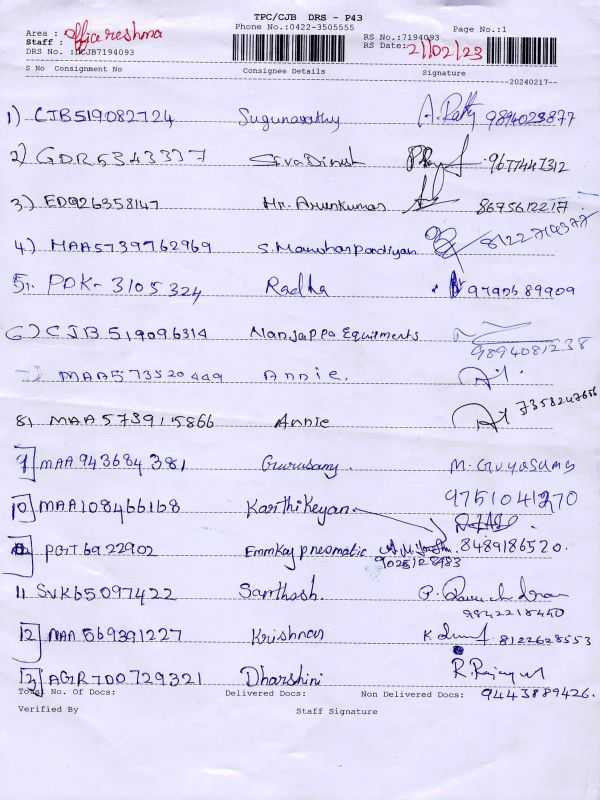 TPC/CJB DRS - P43
Phone No.:0422-3505555
Area : office reshma
Staff :
DRS No. :CJB7194093
RS No.:7194093
RS Date: 21/02/23
Page No.:1
S No Consignment No Consignee Details Signature
20240217
1) CJB519082724 Sugunavathy 9894023877
2) GDR5343337 Siva Dinesh 9677447312
3) EDQ26358147 Mr. Arunkumar 8675612217
4) MAA5739762969 S. Manohar pandiyan 8122714377
5). PDK-3105324 Radha 9790589909
6) CJB519096314 Nanjappa Equitments
9894081238
7) MAA573520449 Annie.
8) MAA573915866 Annie 7358247656
9] MAA943684381 Gurusamy. M. Guyosumy
10] MAA108466168 Karthikeyan. 9751041270
PGT6922902 Emmkay pneomatic 8489186520.
9025128983
11 SVK65097422 Santhosh. P. Ravichandran
9842218440
12] MAA569391227 Krishnan 8122628553
13] AGR700729321 Dharshini
Total No. Of Docs: Delivered Docs: Non Delivered Docs: 9443889426.
Verified By Staff Signature